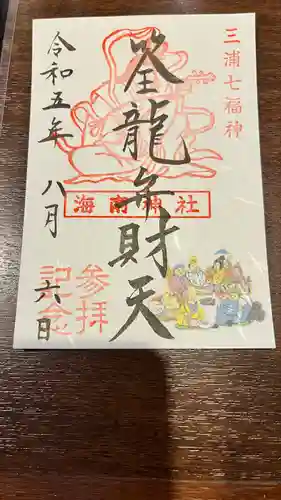 三浦七福神
筌龍弁財天
海南神社
令和五年 八月 六日
参拝
記念